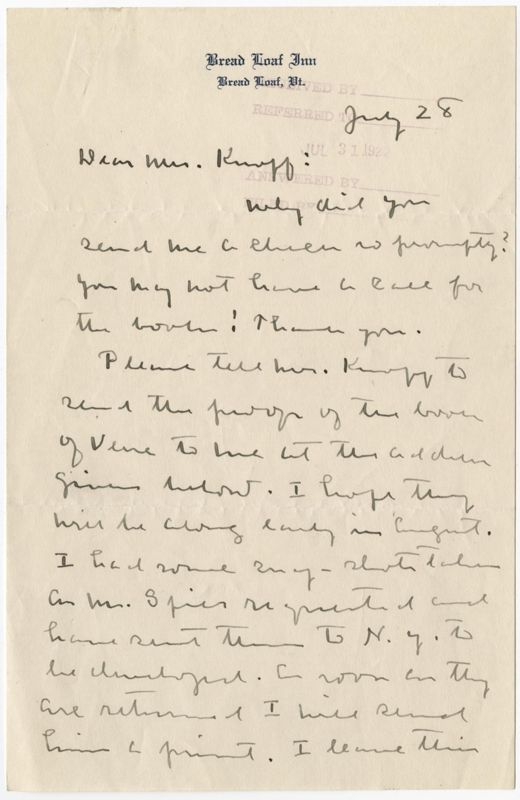 Bread Loaf Inn
Bread Loaf, Vt.
RECEIVED BY
REFERRED TO
July 28
JUL 31 192
Dear Mrs. Knopf:
ANSWERED BY
Why did you
send me a check so promptly?
You may not have a call for
the book! Thank you.
Please tell Mr. Knopf to
send the proof of the book
of Verse to me at the address
given below. I hope they
will be along early in August.
I had some snap-shots taken
as Mr. Spier requested and
have sent them to N.Y. to
be developed. As soon as they
are returned I will send
him a print. I leave this